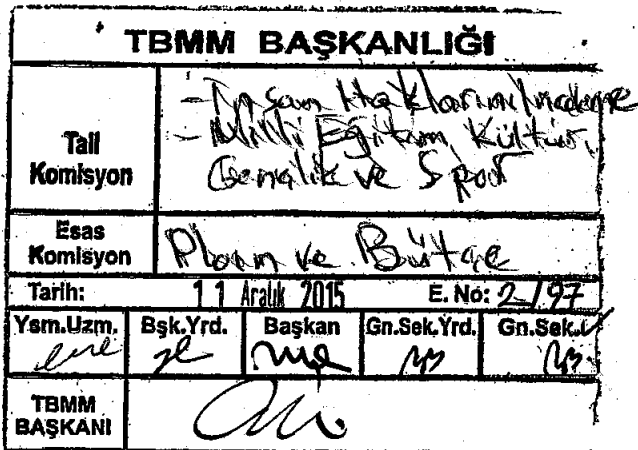 TBMM BAŞKANLIĞI
Tali Komisyon
- İnsan Haklarını İnceleme
- Milli Eğitim, Kültür,
Gençlik ve Spor
Esas Komisyon
Plan ve Bütçe
Tarih: 11 Aralık 2015 E. No: 2/97
Ysm.Uzm. Bşk.Yrd. Başkan Gn.Sek.Yrd. Gn.Sek.
TBMM BAŞKANI